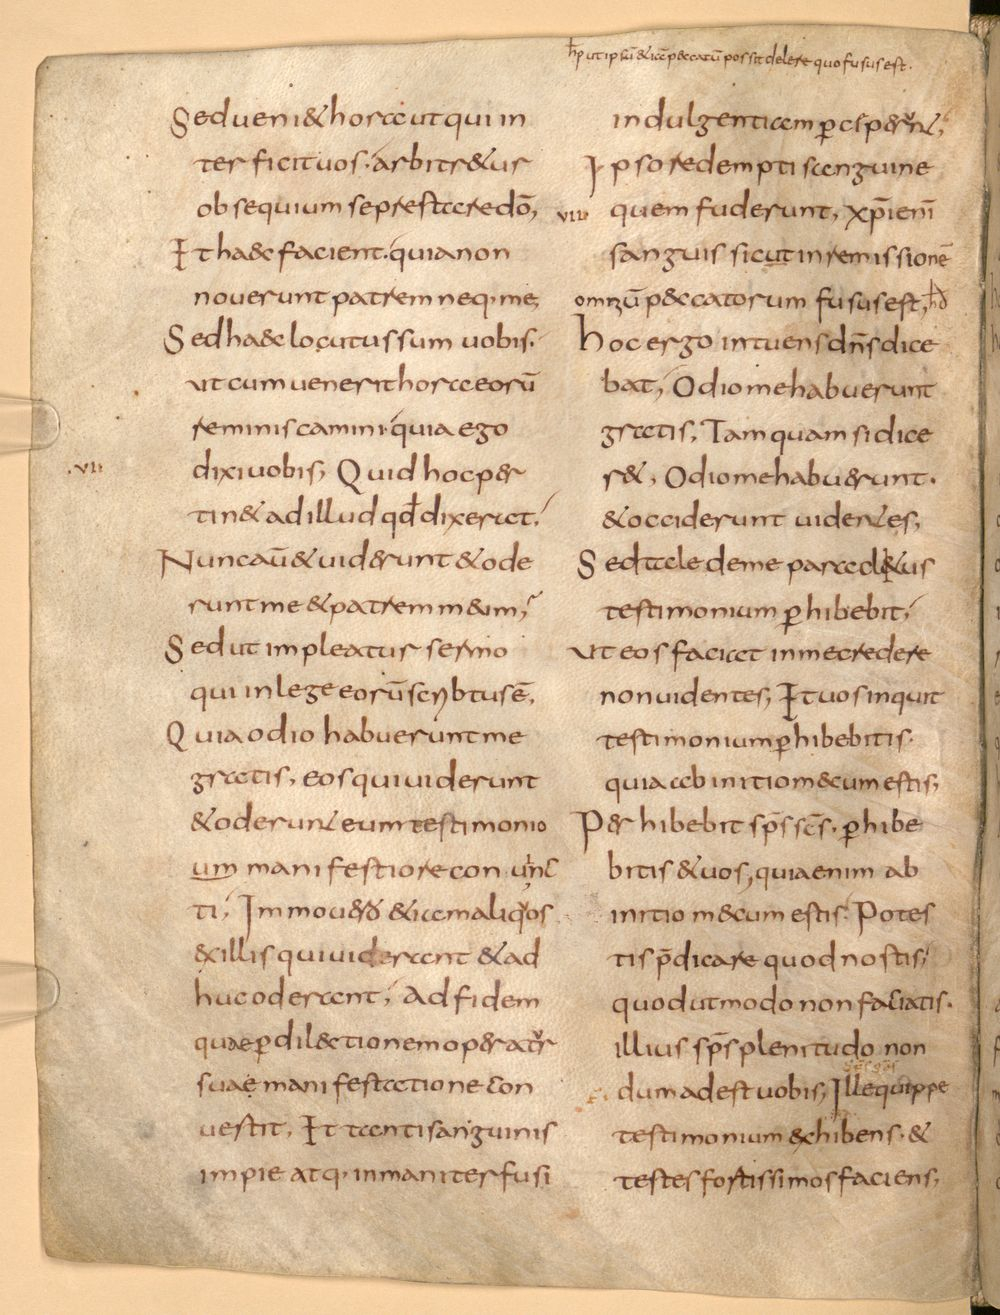 hp ut ipsū &iā peccatū possit delere quo fusus est.
Sed ueni& hora ut qui in
terficit uos. arbitr&ur
obsequium se prestare dō,
It haec facient. quia non
nouerunt patrem neq; me,
Sed haec locutus sum uobis.
ut cum uenerit hora eorū
reminiscamini. quia ego
.VII.
dixi uobis, Quid hoc per
tin& ad illud qđ dixerat,
Nunc aū & uiderunt & ode
runt me & patrem meum,
Sed ut impleatur sermo
qui in lege eorū scrybtus ē,
Quia odio habuerunt me
gratis, eos qui uiderunt
& oderunt eum testimonio
um manifestiore con uinc
ti, Immo uero &iam aliquos
ex illis qui uiderant & ad
huc oderant, Ad fidem
quae ꝑ dilectionem operatur
suae manifestatione con
uertit, It tanti sanguinis
impie atq; inmaniter fusi
indulgentiam ꝑciperent,
Ipso redempti sanguine
VIII
quem fuderunt, xp̄i enī
sanguis sic ut in remissionē
omniū peccatorum fusus est, hđ
hoc ergo intuens dn̄s dice
bat, Odio me habuerunt
gratis, Tamquam si dice
r&, Odio me habuerunt.
& occiderunt uidentes,
Sed tale de me paracl&us
testimonium ꝑhibebit,
ut eos faciat in me credere
non uidentes, It uos inquit
testimonium ꝑhibebitis.
quia ab initio mecum estis,
Perhibebit sp̄s sc̄s. ꝑhibe
bitis & uos, quia enim ab
initio mecum estis. Potes
tis p̄dicare quod nostis,
quod ut modo non faciatis.
illius sp̄s plenitudo non
dum adest uobis, Ille quippe
testimonium exhibens. &
testes fortissimos faciens,